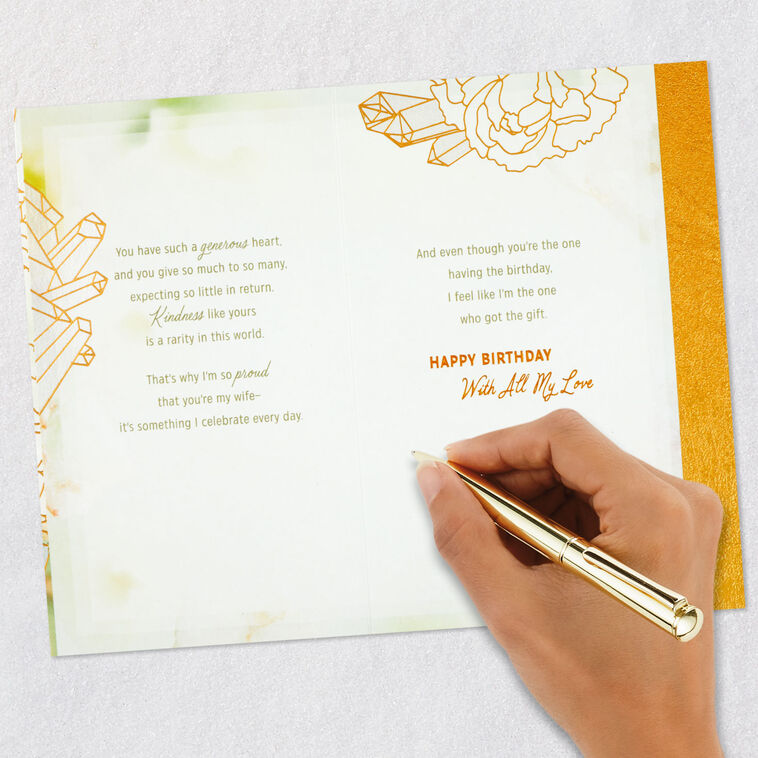 You have such a generous heart,
and you give so much to so many,
expecting so little in return.
Kindness like yours
is a rarity in this world.
That's why I'm so proud
that you're my wife–
it's something I celebrate every day.
And even though you're the one
having the birthday,
I feel like I'm the one
who got the gift.
HAPPY BIRTHDAY
With All My Love